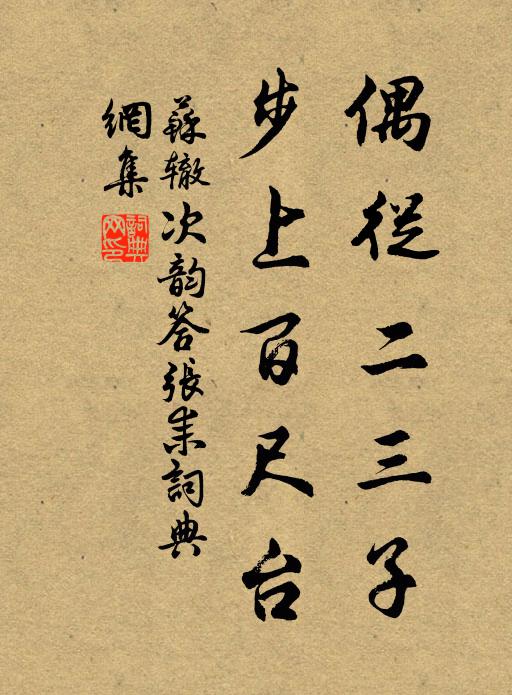 偶從二三子
步上百尺台
蘇轍次韵答張耒詞典
網集
詞典网印